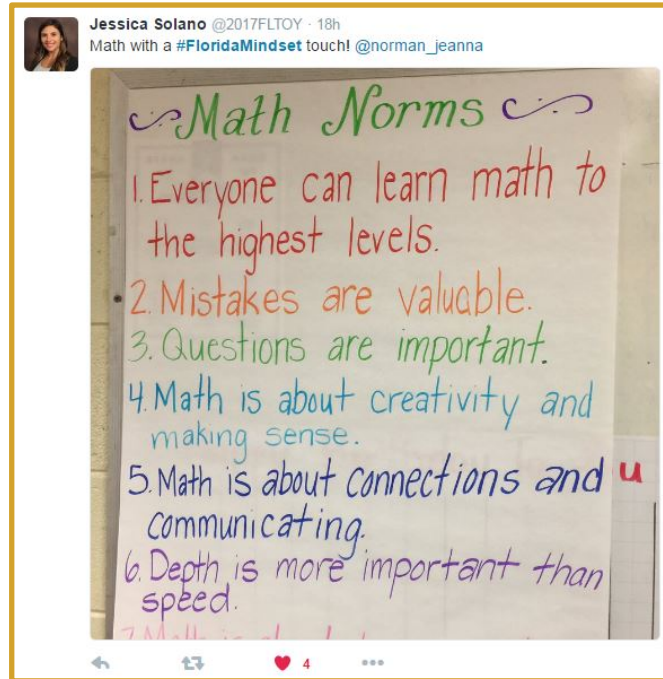 Jessica Solano @2017FLTOY · 18h
Math with a #FloridaMindset touch! @norman_jeanna
Math Norms
1. Everyone can learn math to
the highest levels.
2. Mistakes are valuable.
3. Questions are important.
4. Math is about creativity and
making sense.
5. Math is about connections and
communicating.
u
6. Depth is more important than
speed.
7. Math is about
4